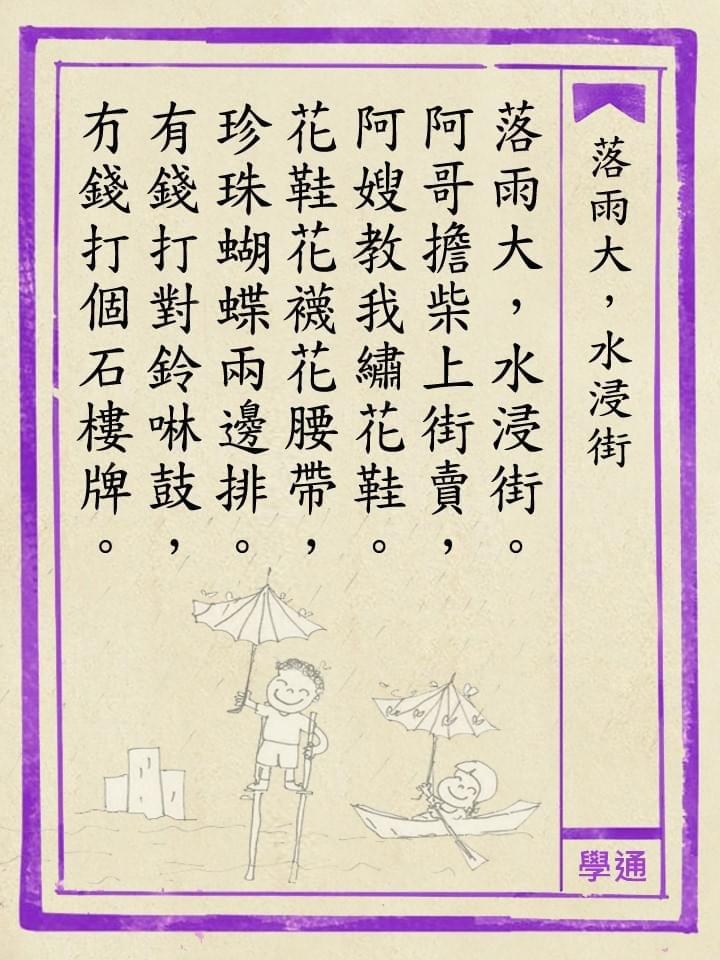 落雨大，水浸街
落雨大，水浸街。
阿哥擔柴上街賣，
阿嫂教我繡花鞋。
花鞋花襪花腰帶，
珍珠蝴蝶兩邊排。
有錢打對鈴啉鼓，
冇錢打個石樓牌。
學通